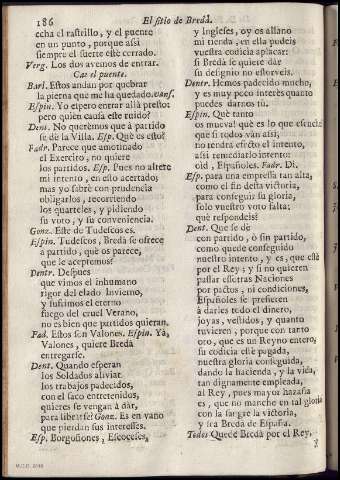 186 El sitio de Bredà.
echa el rastrillo, y el puente
en un punto, porque assi
siempre el fuerte estè cerrado.
Verg. Los dos avemos de entrar.
Cae el puente.
Barl. Estos andan por quebrar
la pierna que me ha quedado. vans.
Espin. Yo espero entrar allà presto:
pero quien causa este ruido?
Dent. No queremos que à partido
se dè la Villa. Esp. Què es esto?
Fadr. Parece que amotinado
el Exercito, no quiere
los partidos. Esp. Pues no altere
mi intento, en esto acertado;
mas yo sabrè con prudencia
obligarlos, recorriendo
los quarteles, y pidiendo
su voto, y su conveniencia.
Gonz. Este de Tudescos es.
Espin. Tudescos, Bredà se ofrece
à partido, què os parece,
que le aceptemos?
Dentr. Despues
que vimos el inhumano
rigor del elado Invierno,
y sufrimos el eterno
fuego del cruel Verano,
no es bien que partidos quieran.
Fad. Estos son Valones. Espin. Yà,
Valones, quiere Bredà
entregarse.
Dent. Quando esperan
los Soldados aliviar
los trabajos padecidos,
con el saco entretenidos,
quieres se vengan à dàr,
para librarse? Gonz. Es en vano
que pierdan sus interesses.
Esp. Borgoñones, Escoceses,
y Ingleses, oy os allano
mi tienda, en ella pudeis
vuestra codicia aplacar:
si Bredà se quiere dàr
su designio no estorveis.
Dentr. Hemos padecido mucho,
y es muy poco interès quanto
puedes darnos tù.
Espin. Què tanto
os mueva! què es lo que escucho
que si todos vàn assi,
no tendrà efecto el intento,
assi remediarlo intento:
olà, Españoles. Fadr. Di.
Esp. para una empressa tan alta,
como el fin desta victoria,
para conseguir su gloria,
solo vuestro voto falta;
què respondeis?
Dent. Que se dè
con partido, ò sin partido,
como quede conseguido
nuestro intento, y es, que estè
por el Rey; y si no quieren
passar essotras Naciones
por pactos, ni condiciones,
Españoles se prefieren
à darles todo el dinero,
joyas, vestidos, y quanto
tuvieren, porque con tanto
oro, que es un Reyno entero,
su codicia estè pagada,
nuestra gloria conseguida,
dando la hacienda, y la vida,
tan dignamente empleada,
al Rey, pues mayor hazaña
es, que no manche en tal gloria
con la sangre la victoria,
y sea Breda de España.
Todos Quede Bredà por el Rey,